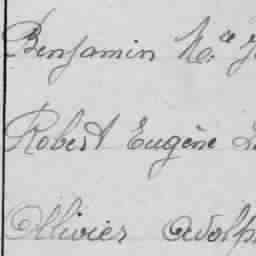 Benjamin
Robert Eugène
Ollivier Adolp